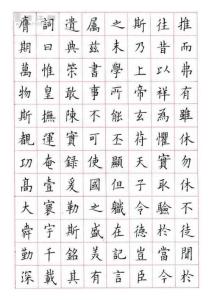 推而弗有雖休勿休不徒聞於
往昔以祥為懼實取驗於當今
斯乃上帝玄符天子令德豈臣
之末學所能丕顯但職在記言
屬茲書事不可使國之盛美有
遺典策敢陳實錄爰勒斯銘其
詞曰惟皇撫運奄壹寰宇千載
膺期萬物斯覩功高大舜勤深